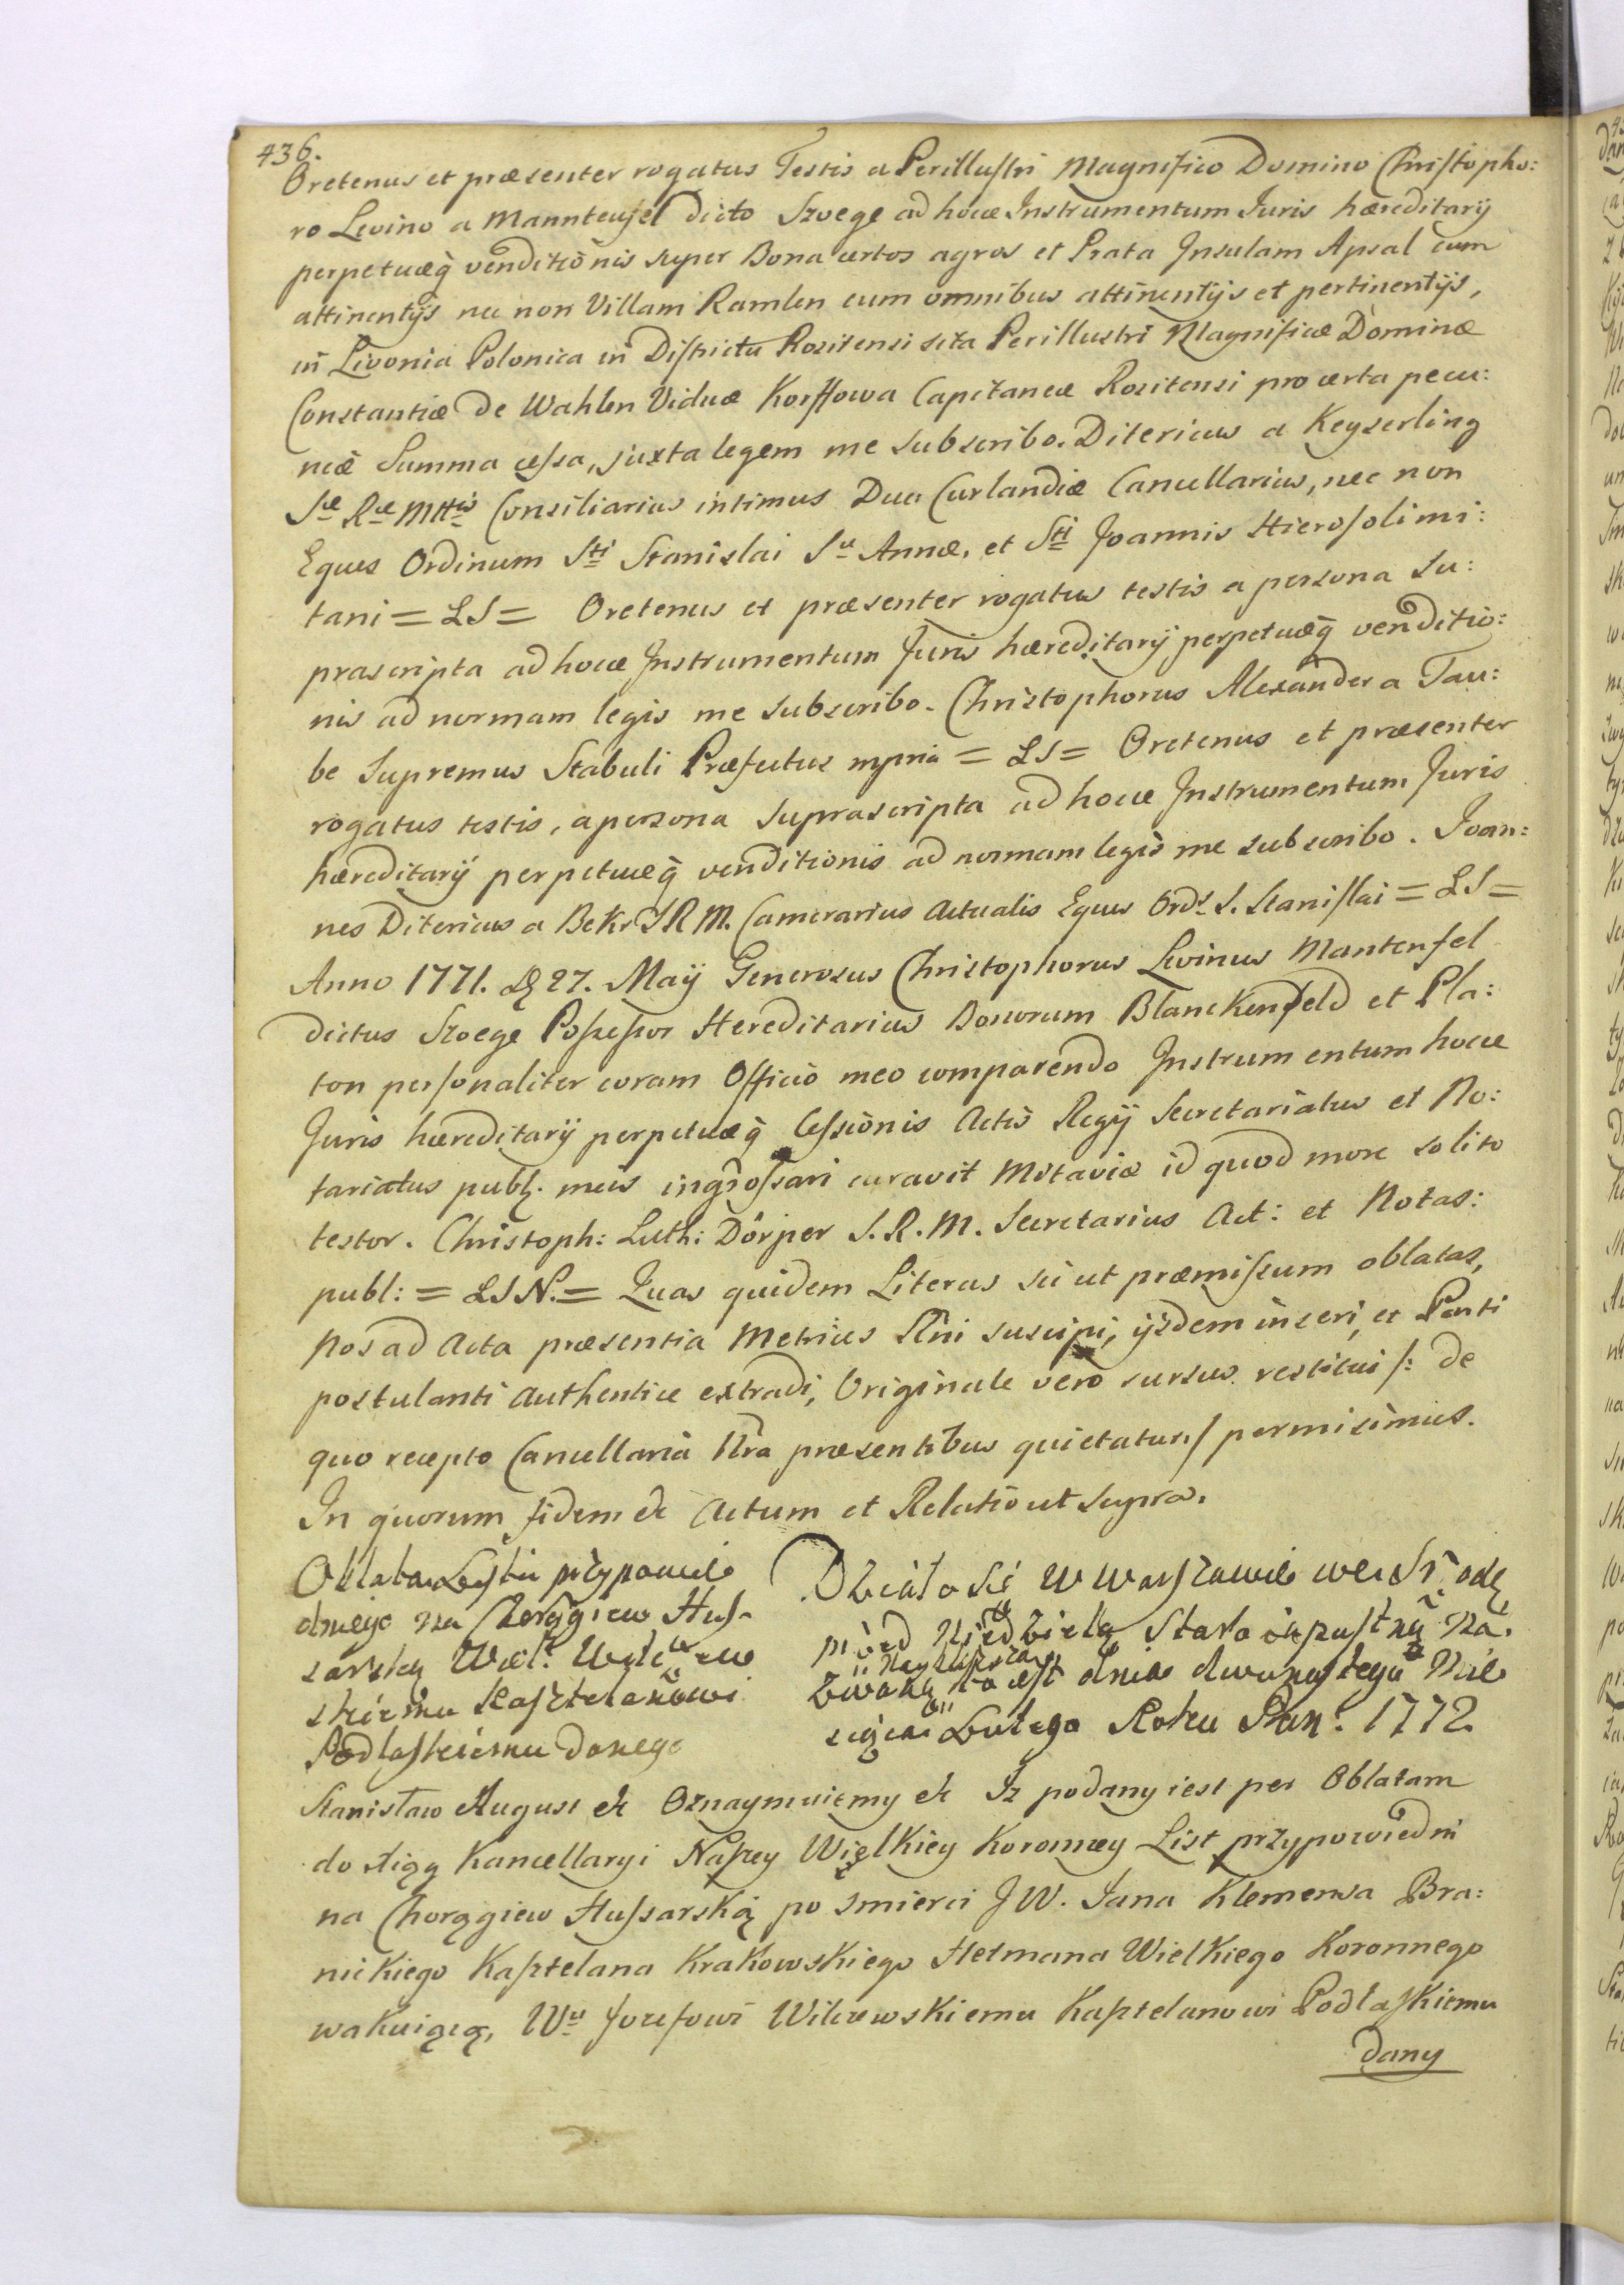 436.
Oretenus et præsenter rogatus Testis a Perillustri Magnifico Domino Christopho:
ro Levino a Mannteufel dicto Szoege ad hocce Instrumentum Juris hæreditarÿ
perpetuæq̃ venditionis super Bona certos agros et Prata Insulam Apsal cum
attinentÿs nec non Villam Ramlen cum omnibus attinentÿs et pertinentÿs,
in Livonia Polonica in Districtu Rozitensi sita Perillustri Magnificæ Dominæ
Constantiæ De Wahlen Viduæ Korffowa Capitaneæ Rozitensi pro certa pecu:
niæ Summa cessa, juxta legem me subscribo. Ditericus a Keyserling
Sæ Ræ Mttis Consiliarius intimus Duci Curlandiæ Cancellarius, nec non
Eques Ordinum Sti Stanislai Stæ Annæ, et Sti Joannis Hierosolimi:
tani = LS = Oretenus et præsenter rogatus testis a persona su:
prascripta ad hocce Instrumentum Juris hæreditarÿ perpetuæq̃ venditio:
nis ad normam legis me subscribo. Christophorus Alexander a Tau:
be Supremus Stabuli Præfectus mpria = LS = Oretenus et præsenter
rogatus testis, a persona suprascripta ad hocce Instrumentum Juris
hæreditarÿ perpetuæq̃ venditionis ad normam legis me subscribo. Joan:
nes Ditericus a Bekr S R M. Camerarius Actualis Eques Ords S. Stanislai = LS =
Anno 1771. D 27. Maÿ Generosus Christophorus Levinus Manteufel
dictus Szoege Possessor Hereditarius Bonorum Blanckenfeld et Pla:
ton personaliter coram Officio meo comparendo Instrumentum hocce
Juris hæreditarÿ perpetuæq̃ Cessionis Actis Regÿ Secretariatus et No:
tariatus publ. meis ingrossari curavit Mitaviæ id quod more solito
testor. Christoph: Luth: Dörper S. R. M. Secretarius Act: et Notas:
publ: = LSN. = Quas quidem Literas sic ut præmissum oblatas,
Nos ad Acta præsentia Metrices Rñi suscipi, ÿsdem inseri, et Parti
postulanti Authentice extradi, Originale vero rursus restitui /: de
quo recepto Cancellaria Ñra præsentibus quietatur :/ permisimus.
In quorum fidem &c Actum et Relatio ut supra.
Oblata Listu przypowie
dniego na Chorągiew Hus-
sarską Wiel. Wilczew
skiemu Kasztelanowi
Podlaskiemu danego
Działo się w Warszawie we Srzodę
przed Niedzielą Staro zapustną na.
Nayblizsza
zwaną to iest dnia dwunastego Mie
siąca Lutego Roku Pan: 1772
Stanisław August &c Oznaymuiemy &c Iz podany iest per Oblatam
do Xiąg Kancellaryi Naszey Więlkiey Koronney List przypowiedni
na Chorągiew Hussarską po smierci JW. Jana Klemensa Bra:
nickiego Kasztelana Krakowskiego Hetmana Wielkiego Koronnego
wakuiącą, Wu Jozefowi Wilczewskiemu Kasztelanowi Podlaskiemu
dany